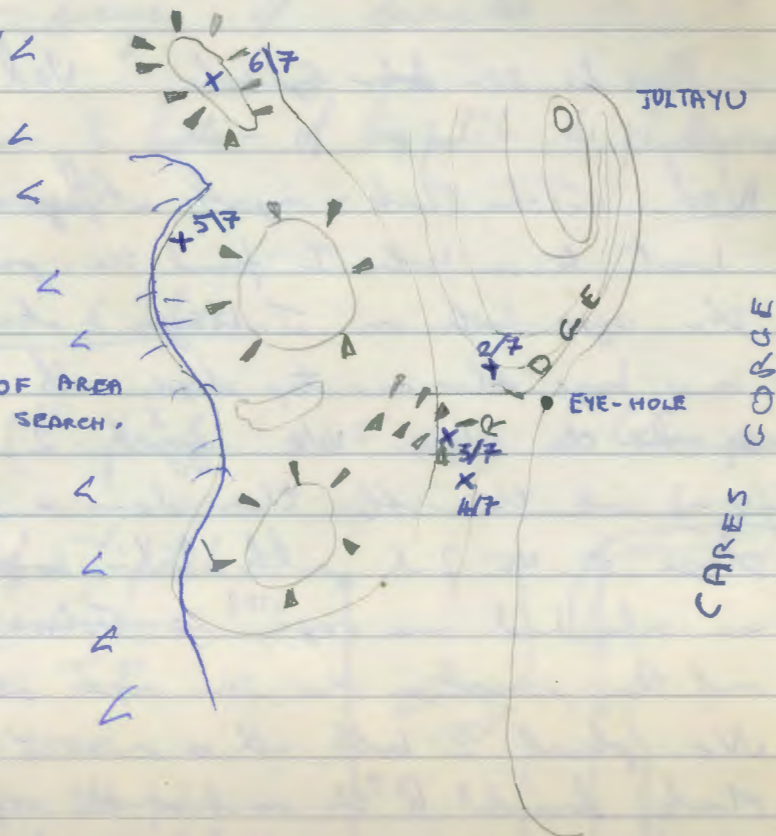 6\7
JULTAYU
5\7
RIDGE
2/7
OF AREA
SEARCH.
EYE-HOLE
3/7
4/7
CARES GORGE